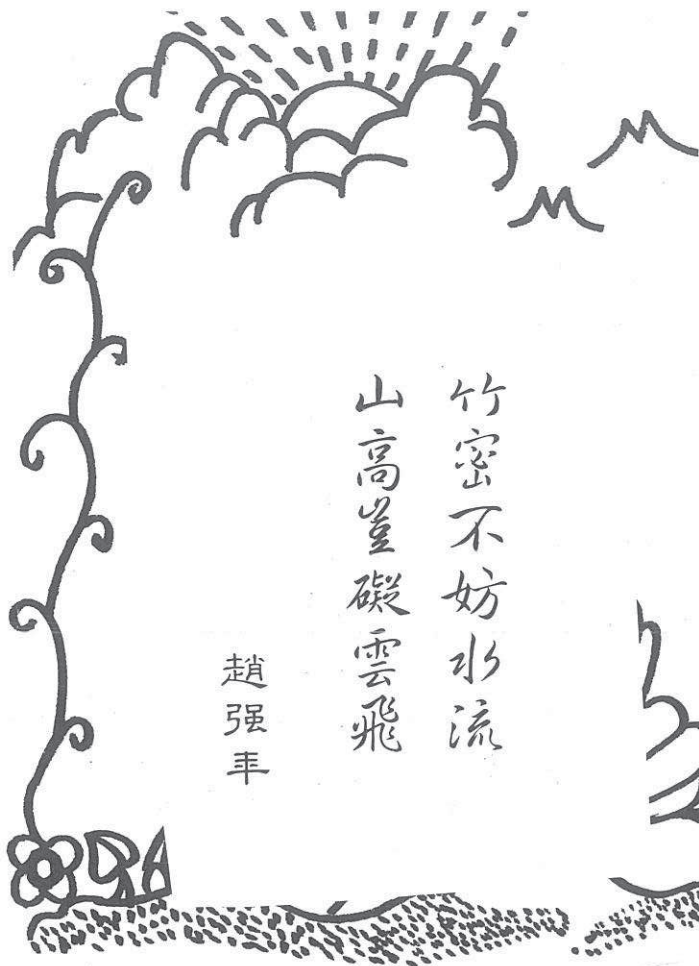 竹密不妨水流
山高豈礙雲飛
趙强丰